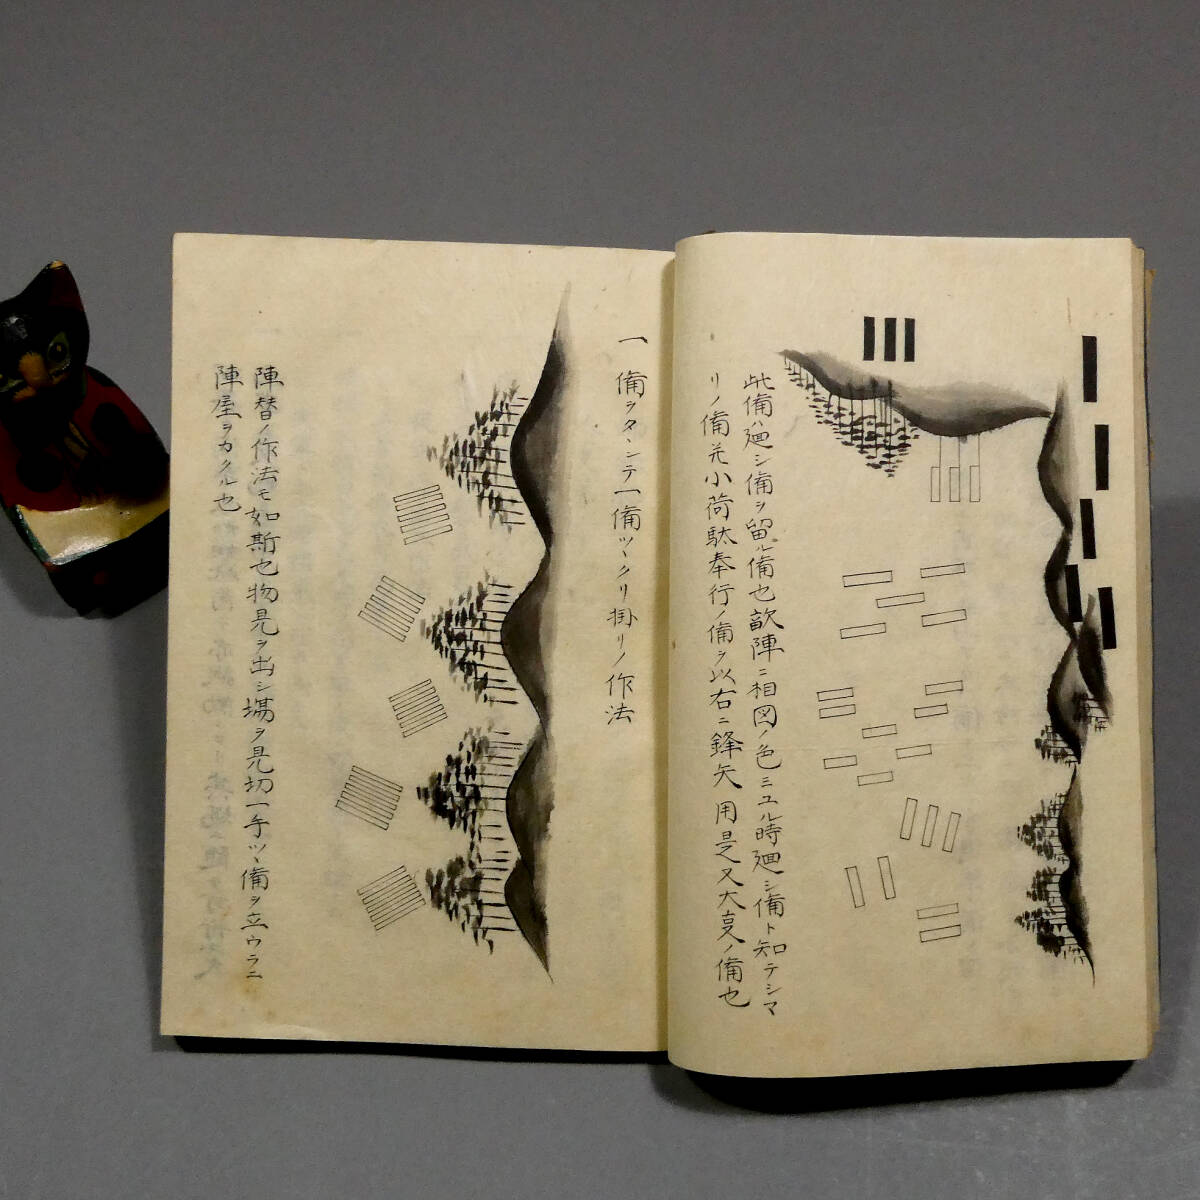 此備ハ廻シ備ヲ留ル備也敵陣ニ相図ノ色ミユル時廻シ備ト知テシマ
リノ備并小荷駄奉行ノ備ヲ以右ニ鋒矢用是又大事ノ備也
一備ヲタンテ一備ツヽクリ掛リノ作法
陣替ノ作法モ如斯也物見ヲ出シ場ヲ見切一手ツヽ備ヲ立ウラニ
陣屋ヲカクル也